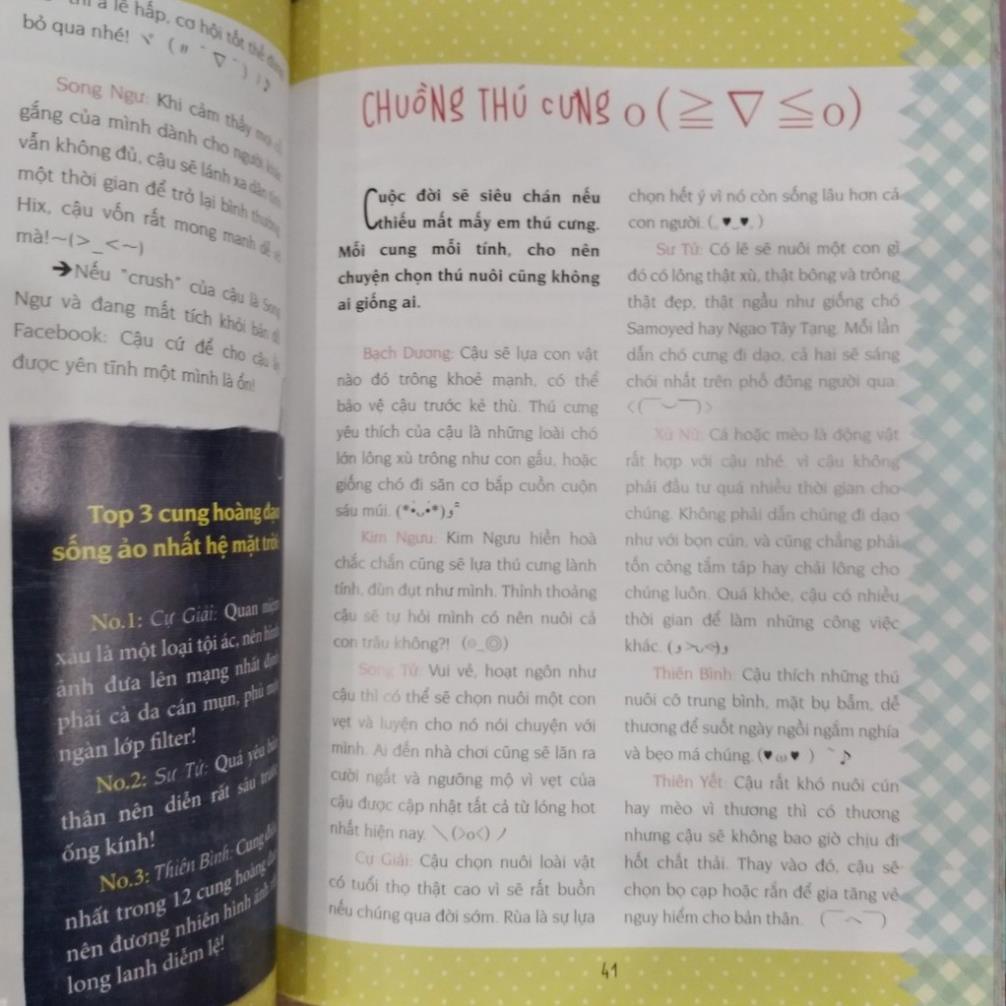 lẽ hấp, cơ hội tốt thế
bỏ qua nhé!
Song Ngư: Khi cảm thấy mọi
gắng của mình dành cho người khác
vẫn không đủ, cậu sẽ lánh xa dân tình
một thời gian để trở lại bình thường
Hix, cậu vốn rất mong manh dễ vỡ
mà!~(>_<~)
➔Nếu "crush" của cậu là Song
Ngư và đang mất tích khỏi bản đồ
Facebook: Cậu cứ để cho cậu ấy
được yên tĩnh một mình là ổn!
Top 3 cung hoàng đạo
sống ảo nhất hệ mặt trời
No.1: Cự Giải: Quan niệm
xấu là một loại tội ác, nên hình
ảnh đưa lên mạng nhất định
phải cà da cán mụn, phủ một
ngàn lớp filter!
No.2: Sư Tử: Quá yêu bản
thân nên diễn rất sâu trước
ống kính!
No.3: Thiên Bình: Cung
nhất trong 12 cung hoàng đạo
nên đương nhiên hình ảnh
long lanh diễm lệ!
CHUỒNG THÚ CƯNG o(≧∇≦o)
Cuộc đời sẽ siêu chán nếu
thiếu mất mấy em thú cưng.
Mỗi cung mỗi tính, cho nên
chuyện chọn thú nuôi cũng không
ai giống ai.
Bạch Dương: Cậu sẽ lựa con vật
nào đó trông khoẻ mạnh, có thể
bảo vệ cậu trước kẻ thù. Thú cưng
yêu thích của cậu là những loài chó
lớn lông xù trông như con gấu, hoặc
giống chó đi săn cơ bắp cuồn cuộn
sáu múi. (*•̀ᴗ•́*)و ̑̑
Kim Ngưu: Kim Ngưu hiền hoà
chắc chắn cũng sẽ lựa thú cưng lành
tính, đủn đụt như mình. Thỉnh thoảng
cậu sẽ tự hỏi mình có nên nuôi cả
con trâu không?! (⊙_◎)
Song Tử: Vui vẻ, hoạt ngôn như
cậu thì có thể sẽ chọn nuôi một con
vẹt và luyện cho nó nói chuyện với
mình. Ai đến nhà chơi cũng sẽ lăn ra
cười ngất và ngưỡng mộ vì vẹt của
cậu được cập nhật tất cả từ lóng hot
nhất hiện nay. ＼(>o<)ノ
Cự Giải: Cậu chọn nuôi loài vật
có tuổi thọ thật cao vì sẽ rất buồn
nếu chúng qua đời sớm. Rùa là sự lựa
chọn hết ý vì nó còn sống lâu hơn cả
con người. (｡♥‿♥｡)
Sư Tử: Có lẽ sẽ nuôi một con gì
đó có lông thật xù, thật bông và trông
thật đẹp, thật ngầu như giống chó
Samoyed hay Ngao Tây Tạng. Mỗi lần
dẫn chó cưng đi dạo, cả hai sẽ sáng
chói nhất trên phố đông người qua.
<(￣︶￣)>
Xử Nữ: Cá hoặc mèo là động vật
rất hợp với cậu nhé, vì cậu không
phải đầu tư quá nhiều thời gian cho
chúng. Không phải dẫn chúng đi dạo
như với bọn cún, và cũng chẳng phải
tốn công tắm táp hay chải lông cho
chúng luôn. Quá khỏe, cậu có nhiều
thời gian để làm những công việc
khác. (و˃̵ᴗ˂̵)و
Thiên Bình: Cậu thích những thú
nuôi cỡ trung bình, mặt bụ bẫm, dễ
thương để suốt ngày ngồi ngắm nghía
và bẹo má chúng. (♥ω♥ ) ~♪
Thiên Yết: Cậu rất khó nuôi cún
hay mèo vì thương thì có thương
nhưng cậu sẽ không bao giờ chịu đi
hốt chất thải. Thay vào đó, cậu sẽ
chọn bọ cạp hoặc rắn để gia tăng vẻ
nguy hiểm cho bản thân. (￣︿￣)
41